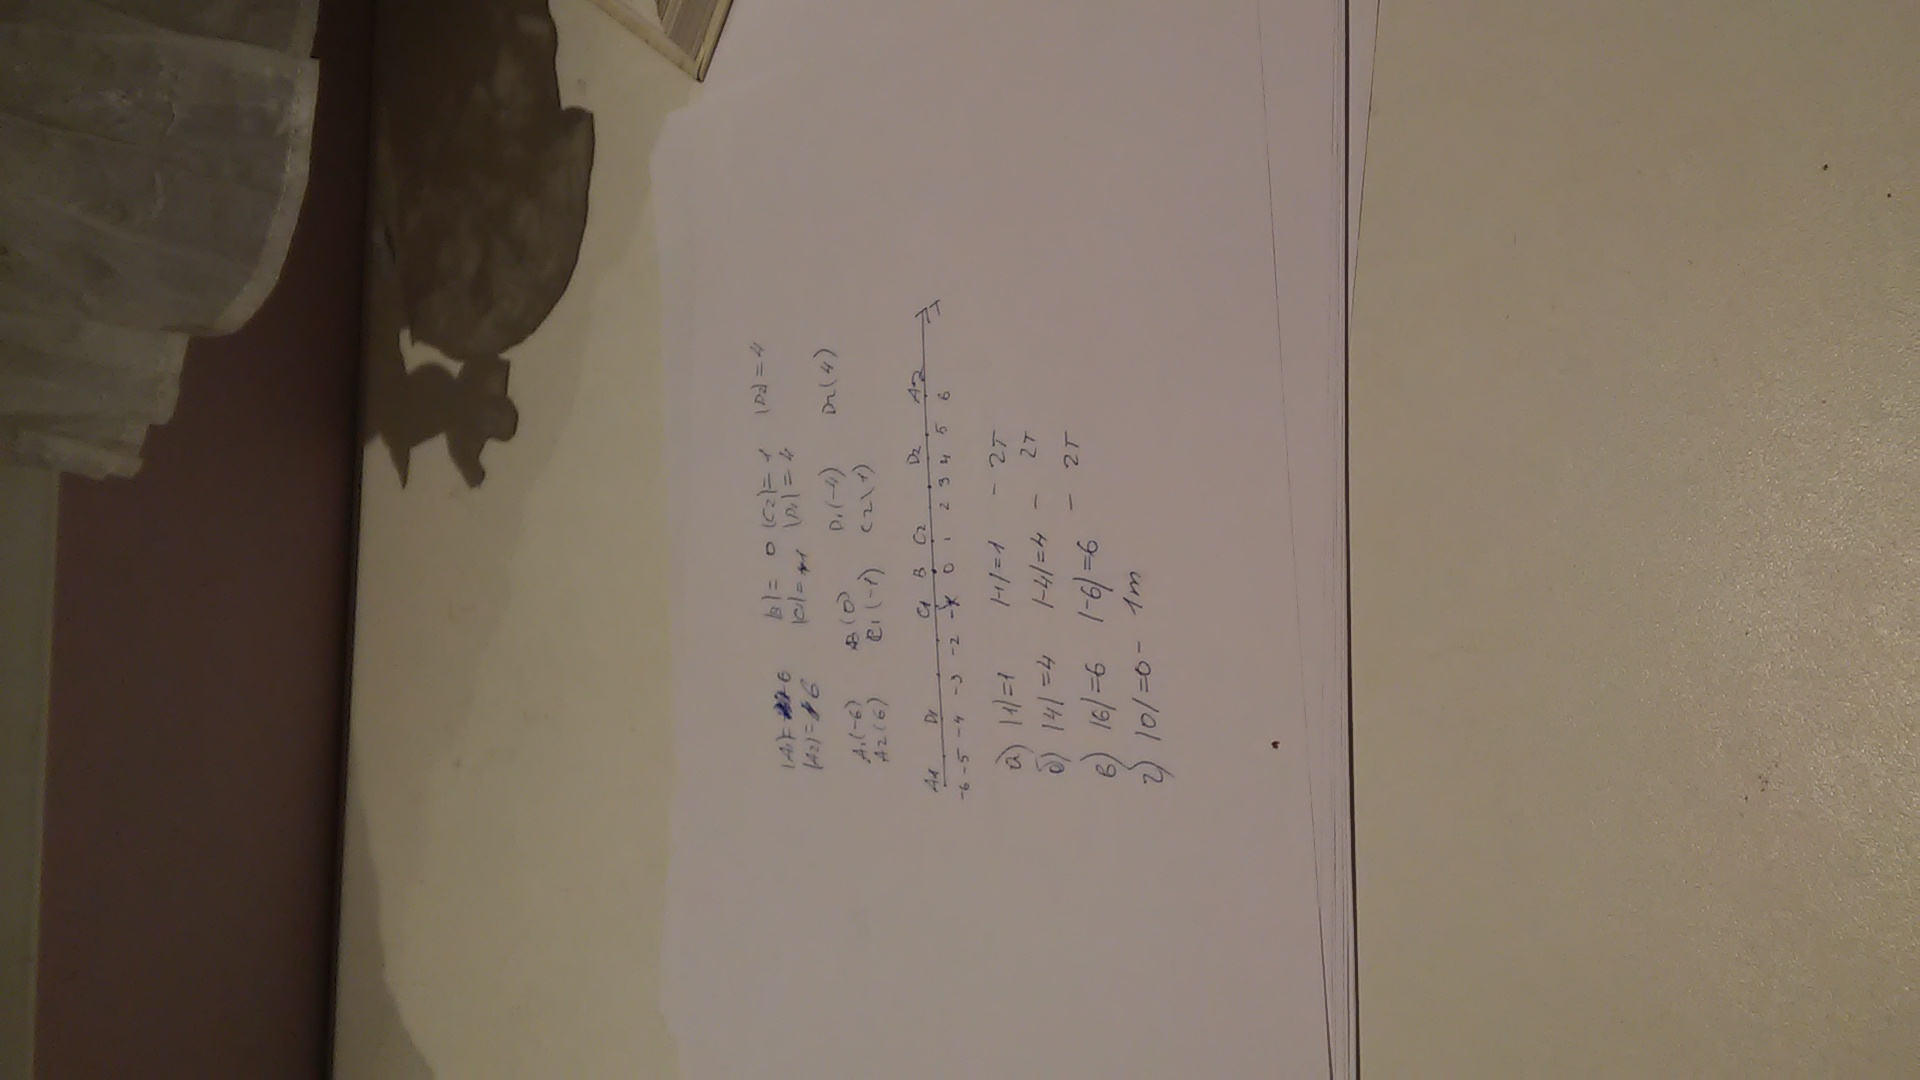 |A1|= 6 |B|= 0 |C2|=1 |D2|=4
|A2|= 6 |C1|= 1 |D1|=4
A1(-6) B(0) D1(-4) D2(4)
A2(6) C1(-1) C2(1)
A1 D1 C1 B C2 D2 A2
-6 -5 -4 -3 -2 -1 0 1 2 3 4 5 6
а) |1|=1 |-1|=1 - 2т
б) |4|=4 |-4|=4 - 2т
в) |6|=6 |-6|=6 - 2т
г) |0|=0- 1т